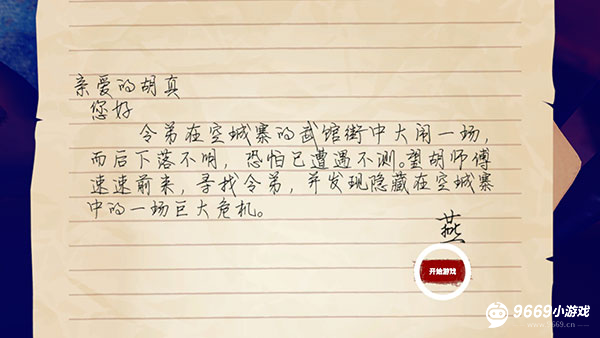 亲爱的胡真
您好
令弟在空城寨的武馆街中大闹一场，
而后下落不明，恐怕已遭遇不测。望胡师傅
速速前来，寻找令弟，并发现隐藏在空城寨
中的一场巨大危机。
燕
开始游戏
9669小游戏
www.9669.cn